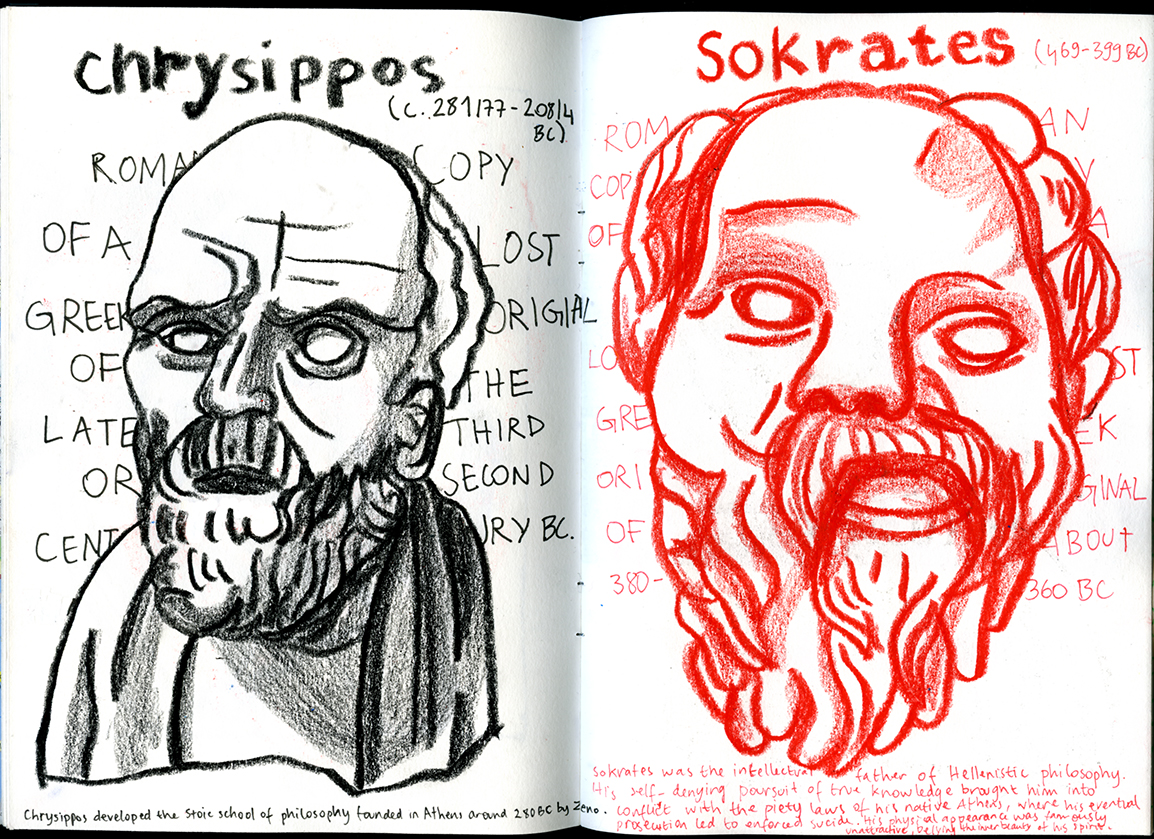 chrysippos
(c. 281/77 - 208/4
BC)
ROMA COPY
OF A LOST
GREEK ORIGIAL
OF THE
LATE THIRD
OR SECOND
CENT URY BC.
Chrysippos developed the Stoic school of philosophy founded in Athens around 280 BC by Zeno.
Sokrates (469-399 BC)
ROM AN
COP Y
OF A
LO ST
GRE EK
ORI GINAL
OF ABOUT
380- 360 BC
Sokrates was the intellectual father of Hellenistic philosophy.
His self-denying poursuit of true knowledge brought him into
conflict with the piety laws of his native Athens, where his eventual
prosecution led to enforced sucide. His physical appearance was famously
unattractive, belying the inner beauty of his spirit.